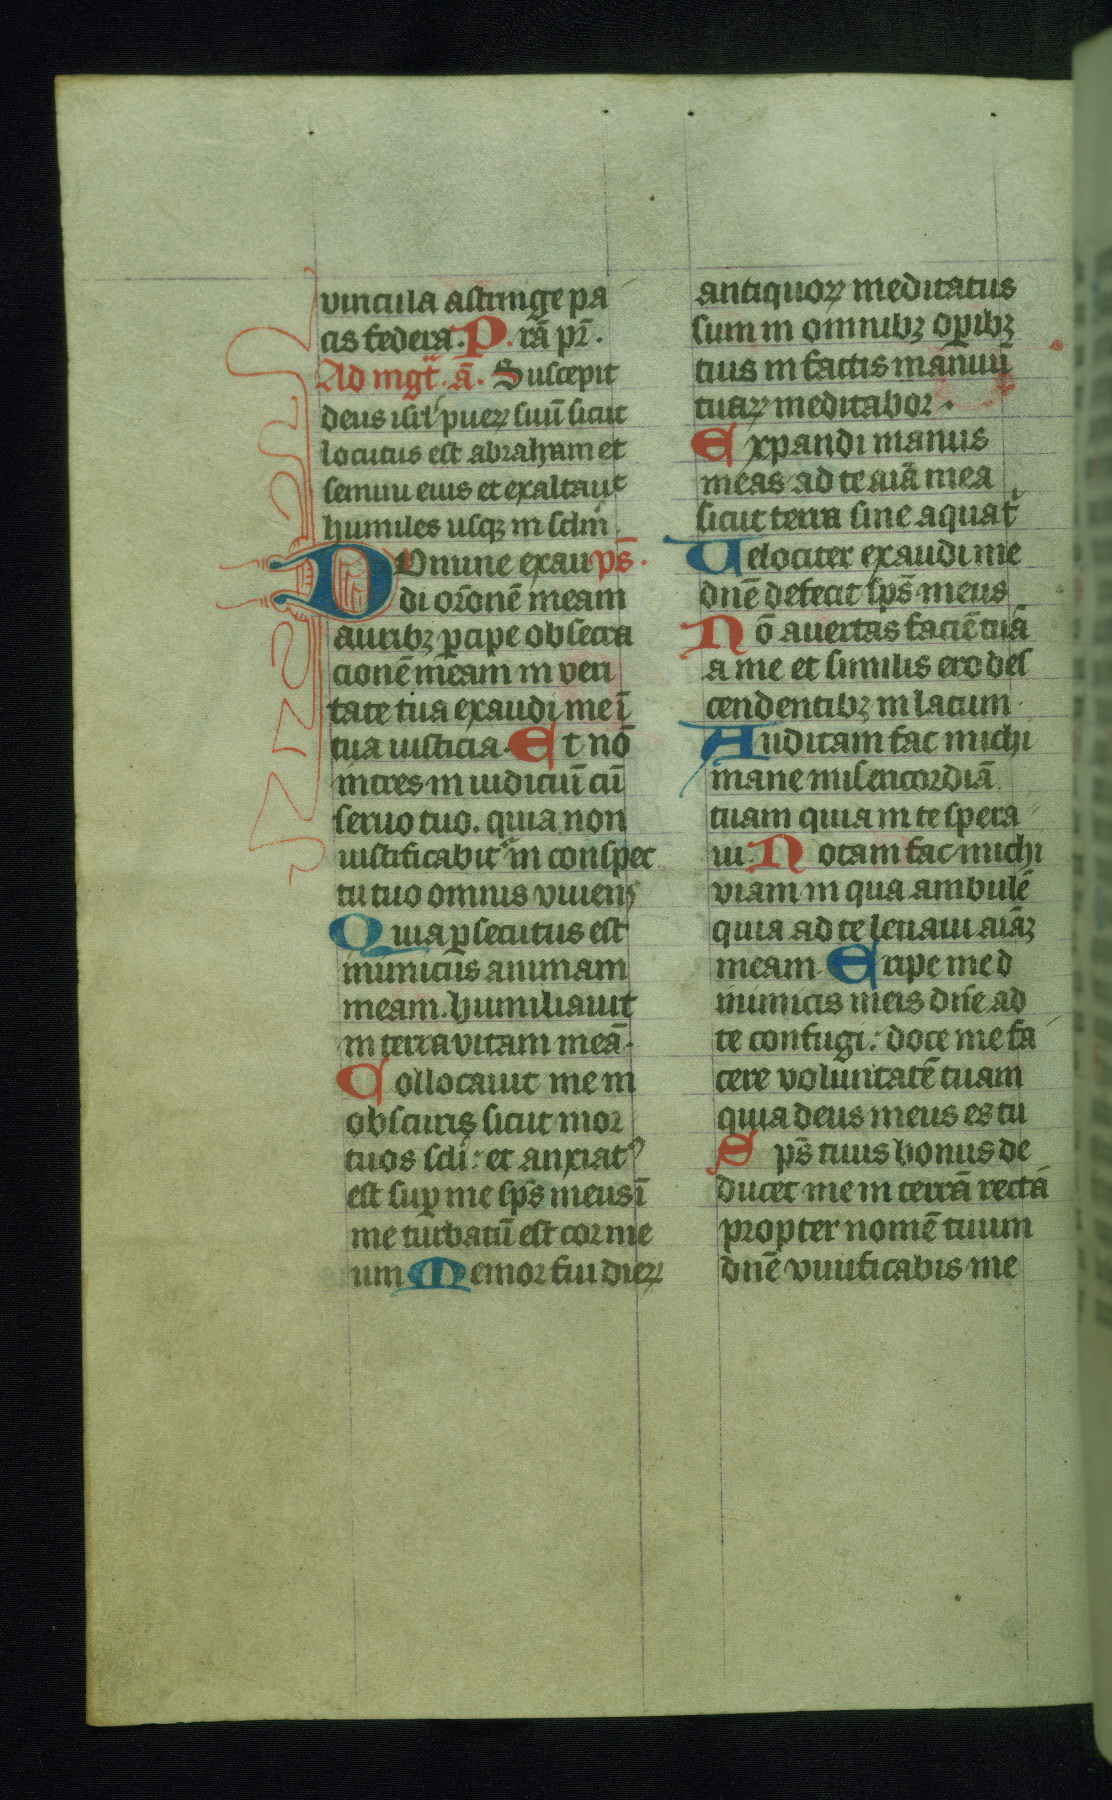 vincula astringe pa
cis federa. P. rā pr̄.
Ad mgt̄. ā. Suscepit
deus isrl puerꝝ suū sicut
locutus est abraham et
semini eius et exaltauit
humiles usqꝫ in sclm̄.
Domine exau ps̄.
di orōnē meam
auribꝫ ꝑcipe obsecra
cionē meam in veri
tate tua exaudi me ī
tua iusticia. Et nō
intres in iudiciū cū
seruo tuo. quia non
iustificabit᷑ in conspec
tu tuo omnis viuens
Quia ꝑsecutus est
inimicus animam
meam. humiliauit
in terra vitam meā.
Collocauit me in
obscuris sicut mor
tuos scli: et anxiatꝰ
est suꝑ me sps̄ meus ī
me turbatū est cor me
um Memor fui dierꝝ
antiquoꝝ meditatus
sum in omnibꝫ oꝑibꝫ
tuis in factis manuū
tuaꝝ meditabor.
Expandi manus
meas ad te aiā mea
sicut terra sine aqua t̄
Velociter exaudi me
dnē defecit sps̄ meus
Nō auertas faciē tuā
a me et similis ero des
cendentibꝫ in lacum
Auditam fac michi
mane misericordiā
tuam quia in te spera
ui. Notam fac michi
viam in qua ambulē
quia ad te leuaui aiāꝫ
meam Eripe me d
inimicis meis dn̄e ad
te confugi: doce me fa
cere voluntatē tuam
quia deus meus es tu
Sps̄ tuus bonus de
ducet me in terrā rectā
propter nomē tuum
dnē viuificabis me